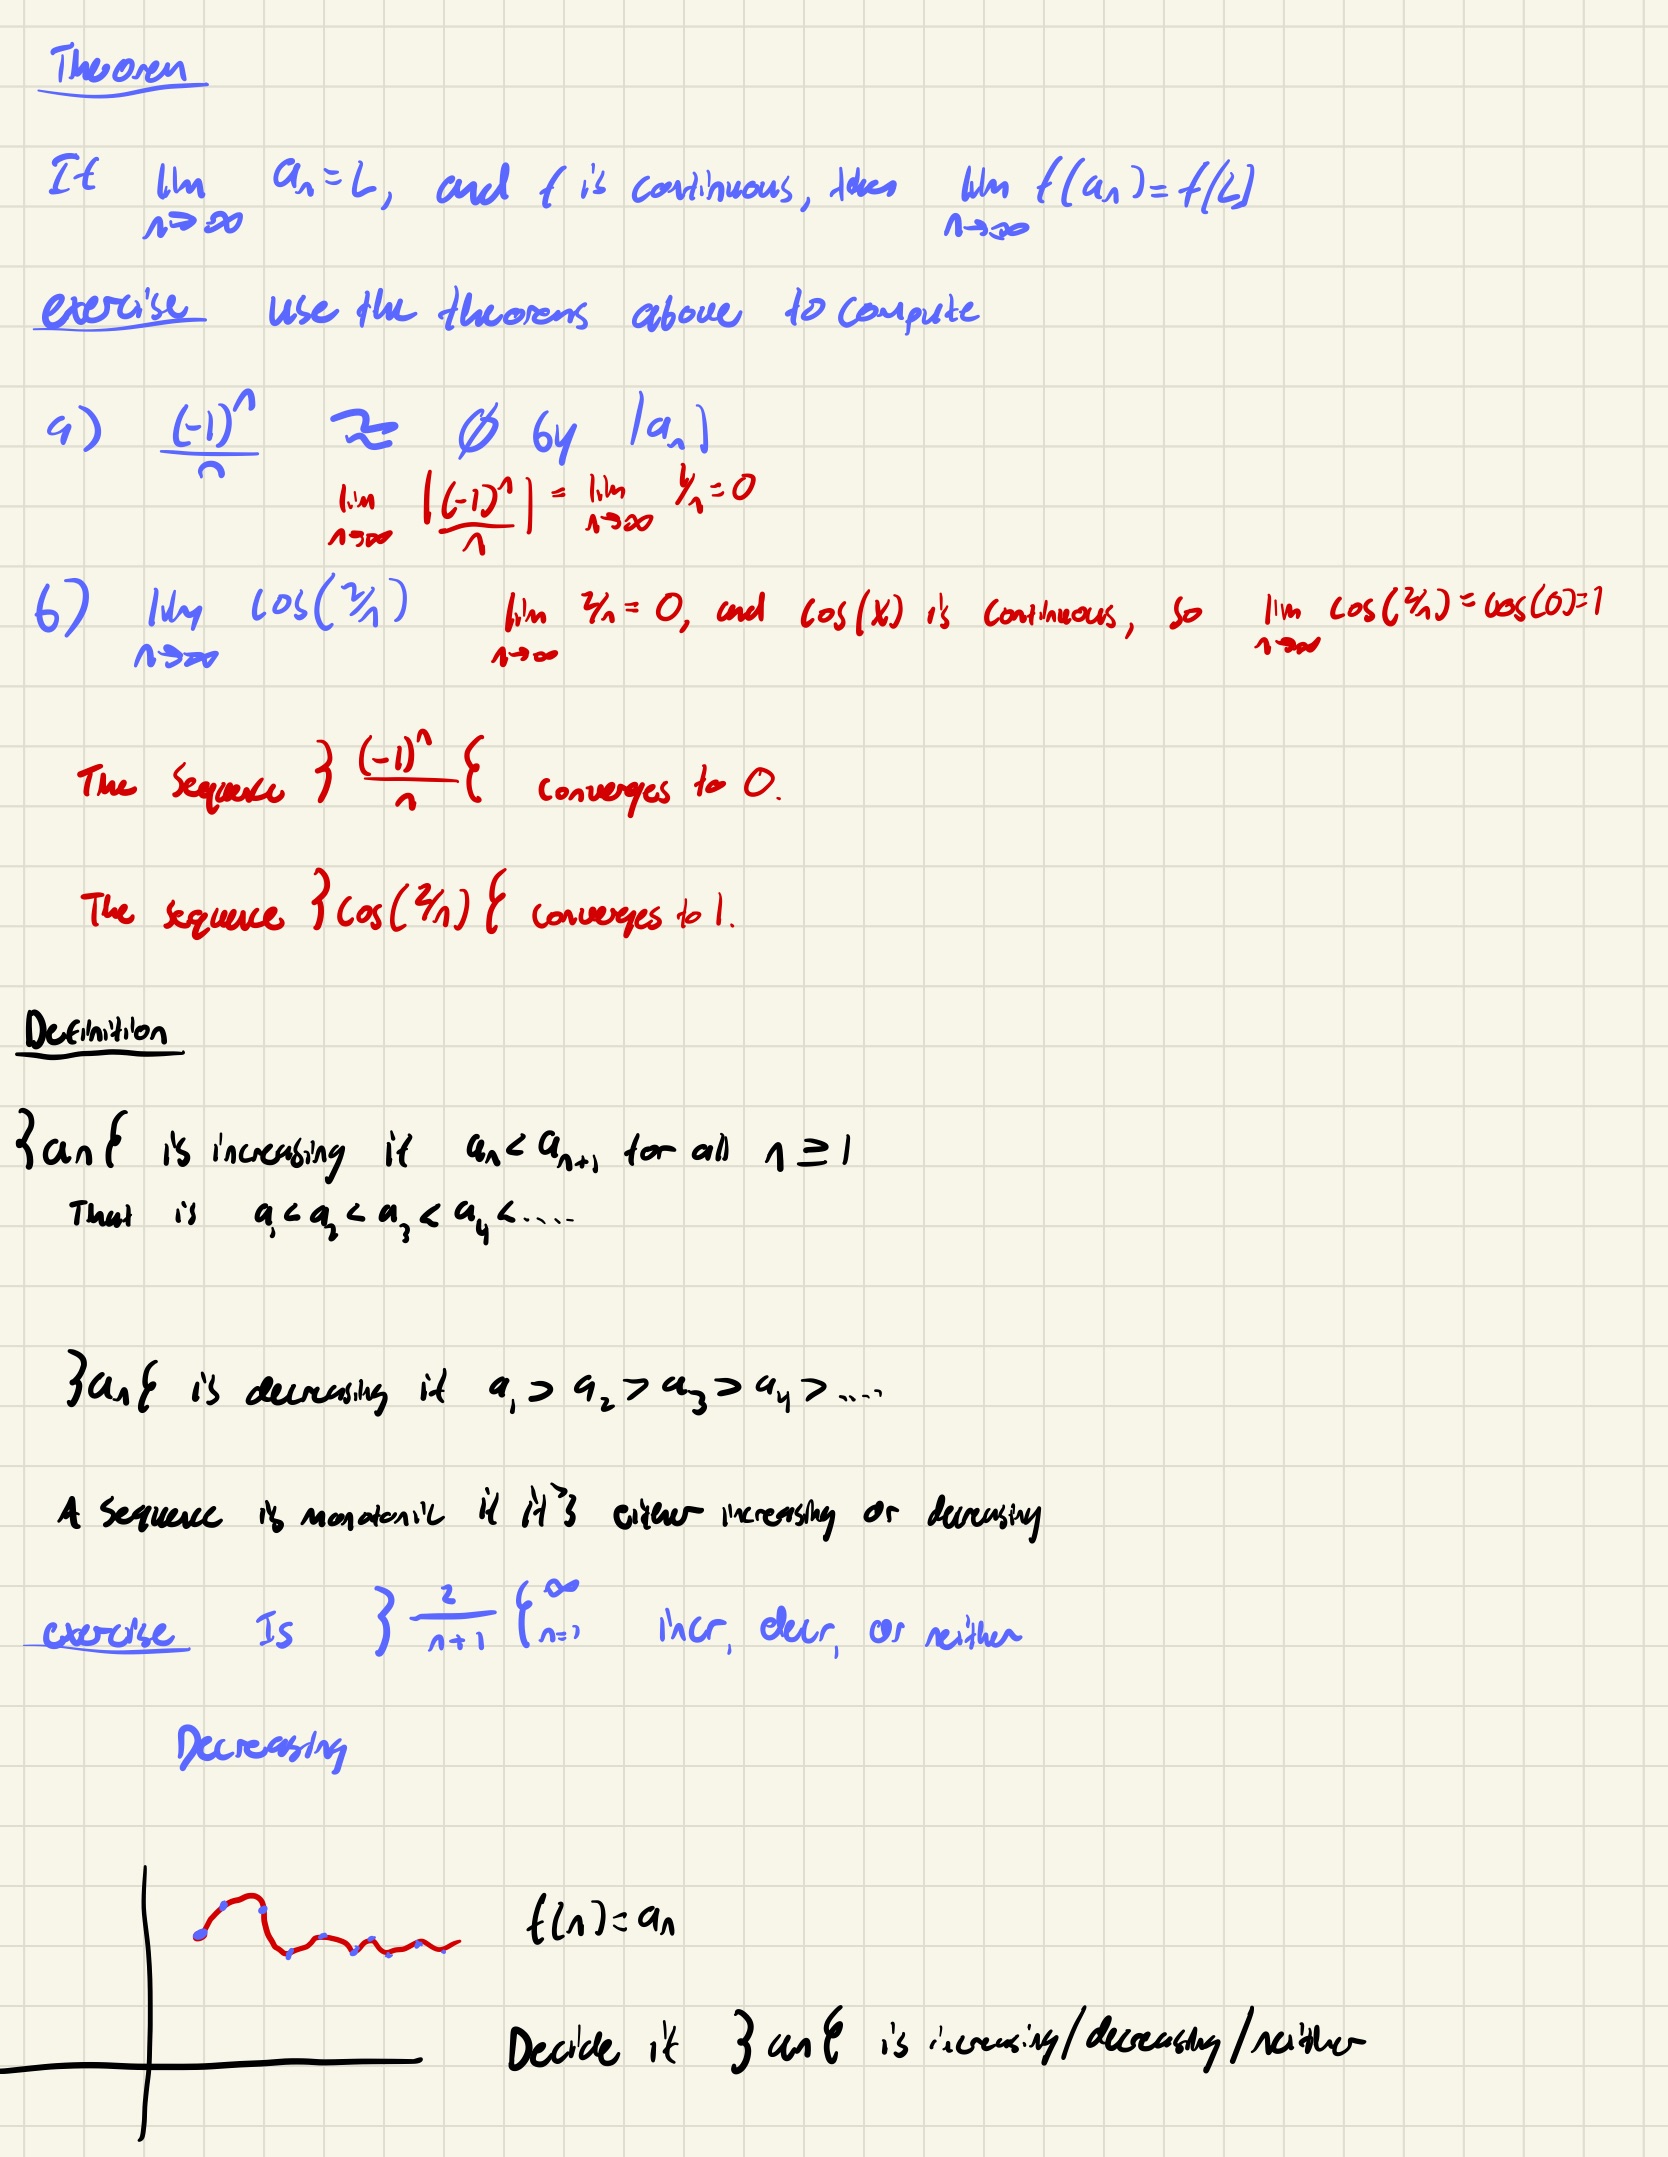 Theorem
If lim n→∞ aₙ = L, and f is continuous, then lim n→∞ f(aₙ) = f(L)
exercise use the theorems above to compute
a) (-1)ⁿ/n ≈ ∅ by |aₙ|
lim n→∞ |(-1)ⁿ/n| = lim n→∞ 1/n = 0
b) lim n→∞ cos(2/n) lim n→∞ 2/n = 0, and cos(x) is continuous, so lim n→∞ cos(2/n) = cos(0) = 1
The sequence }(-1)ⁿ/n{ converges to 0.
The sequence }cos(2/n){ converges to 1.
Definition
}aₙ{ is increasing if aₙ < aₙ₊₁ for all n ≥ 1
That is a₁ < a₂ < a₃ < a₄ < .....
}aₙ{ is decreasing if a₁ > a₂ > a₃ > a₄ > .....
A sequence is monotonic if it's either increasing or decreasing
exercise Is }2/(n+1){ ∞ n=1 incr, decr, or neither
Decreasing
f(n) = aₙ
Decide if }aₙ{ is increasing/decreasing/neither